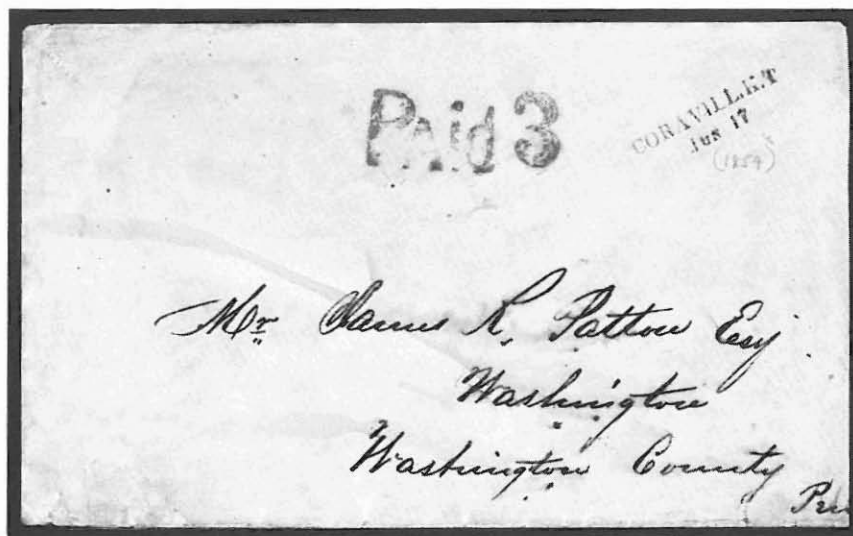 Paid 3
CORAVILL.K.T
JUN 17
(1859)
Mr James R. Patton Esq
Washington
Washington County